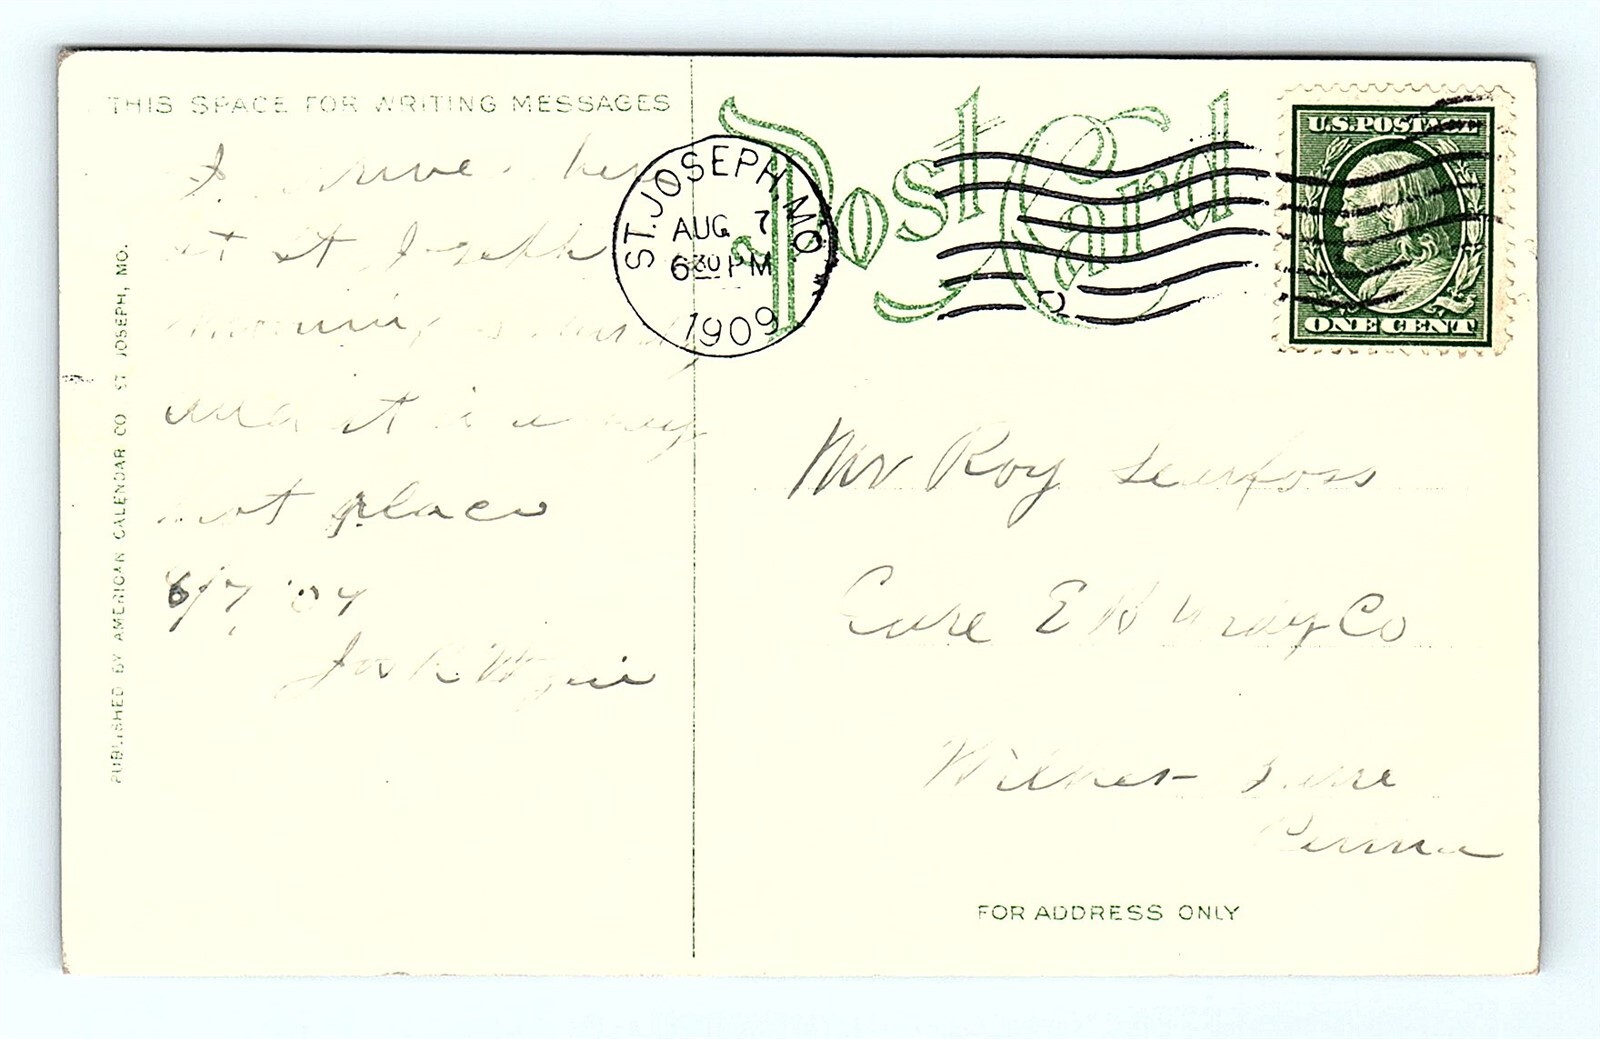 THIS SPACE FOR WRITING MESSAGES
Post Card
ST. JOSEPH, MO.
AUG 7
6 30 PM
1909
U.S. POSTAGE
ONE CENT
I
at St Joseph
morning
and it is a very
hot place
8/7 '09
PUBLISHED BY AMERICAN CALENDAR CO ST. JOSEPH, MO.
Mr Roy
Care E H Co
Wilkes-Barre
Penna
FOR ADDRESS ONLY